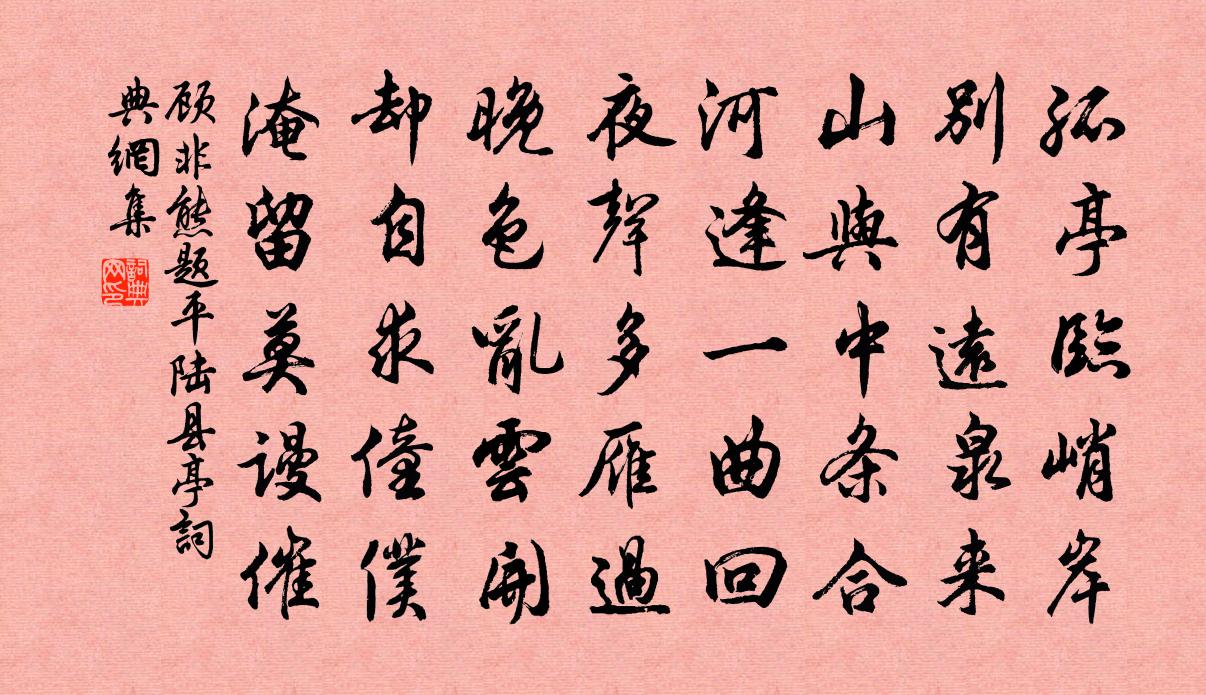 孤亭臨峭岸
别有遠泉来
山與中条合
河逢一曲回
夜聲多雁過
晚色亂雲開
却自求僮僕
淹留莫謾催
顾非熊题平陆县亭詞
典網集
詞典
网印